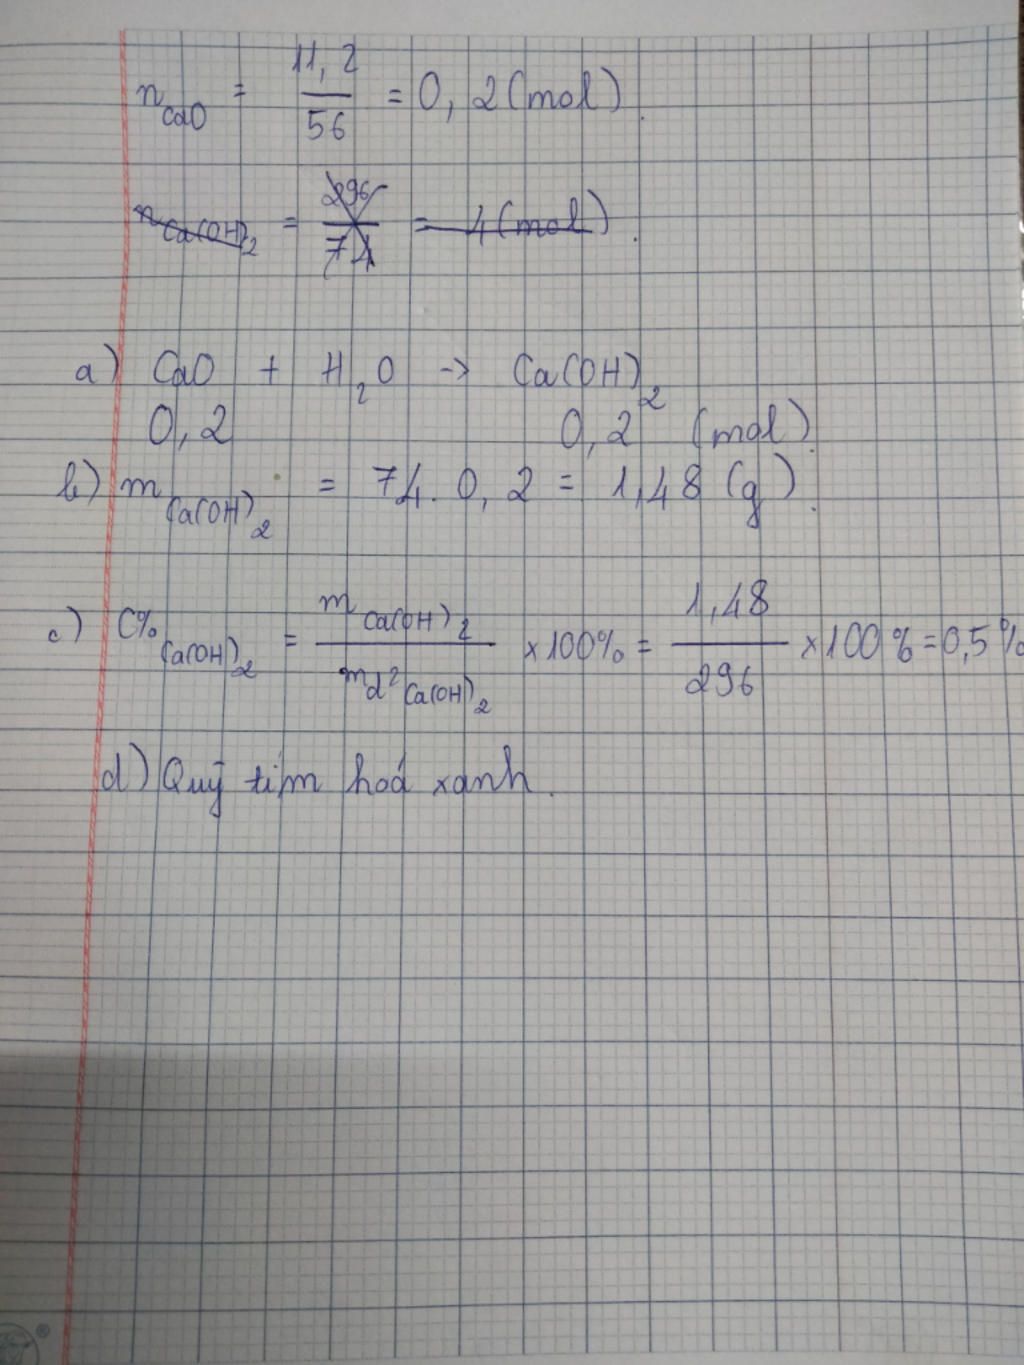 n CaO = 11,2 / 56 = 0,2 (mol).
n Ca(OH)2 = 296 / 74 = 4 (mol).
a) CaO + H2O -> Ca(OH)2
0,2 0,2 (mol).
b) m Ca(OH)2 = 74. 0,2 = 1,48 (g).
c) C% Ca(OH)2 = m Ca(OH)2 / m d2 Ca(OH)2 x100% = 1,48 / 296 x100% = 0,5%
d) Quỳ tím hoá xanh.